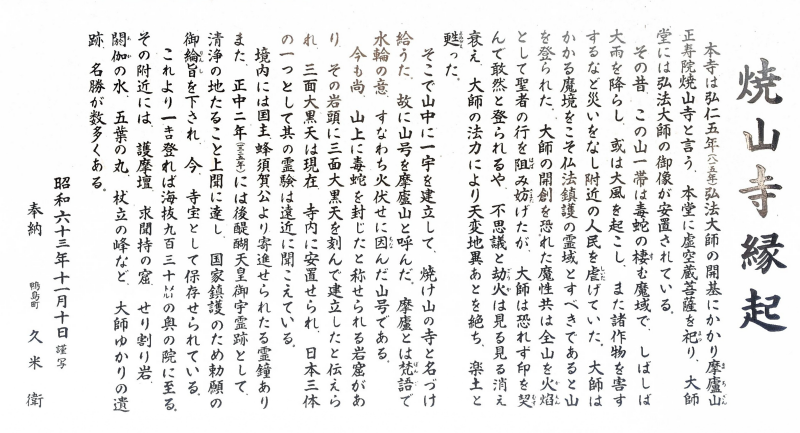 焼山寺縁起
本寺は弘仁五年(八一五年)弘法大師の開基にかかり摩廬山
正寿院焼山寺と言う。本堂に虚空蔵菩薩を祀り、大師
堂には弘法大師の御像が安置されている。
その昔、この山一帯は毒蛇の棲む魔域で、しばしば
大雨を降らし、或は大風を起こし、また諸作物を害す
するなど災いをなし附近の人民を虐げていた。大師は
かかる魔境をこそ仏法鎮護の霊域とすべきであると山
を登られた。大師の開創を恐れた魔性共は全山を火焰
として聖者の行を阻み妨げたが、大師は恐れず印を契
んで敢然と登られるや、不思議と劫火は見る見る消え
衰え、大師の法力により天変地異あとを絶ち、楽土と
甦った。
そこで山中に一宇を建立して、焼け山の寺と名づけ
給うた。故に山号を摩廬山と呼んだ。摩廬とは梵語で
水輪の意、すなわち火伏せに因んだ山号である。
今も尚、山上に毒蛇を封じたと称せられる岩窟があ
り、その岩頭に三面大黒天を刻んで建立したと伝えら
れ、三面大黒天は現在、寺内に安置せられ、日本三体
の一つとして其の霊験は遠近に聞こえている。
境内には国主、蜂須賀公より寄進せられたる霊鐘あり
また、正中二年には後醍醐天皇御宇霊跡として、
清浄の地たること上聞に達し、国家鎮護のため勅願の
御綸旨を下され、今、寺宝として保存せられている。
これより一吉登れば海抜九百三十の奥の院に至る。
その附近には、護摩壇、求聞持の窟、せり割り岩、
閼伽の水、五葉の丸、杖立の峰など、大師ゆかりの遺
跡、名勝が数多くある。
昭和六十三年十一月十日 謹写
奉納 鴨島町 久米衛